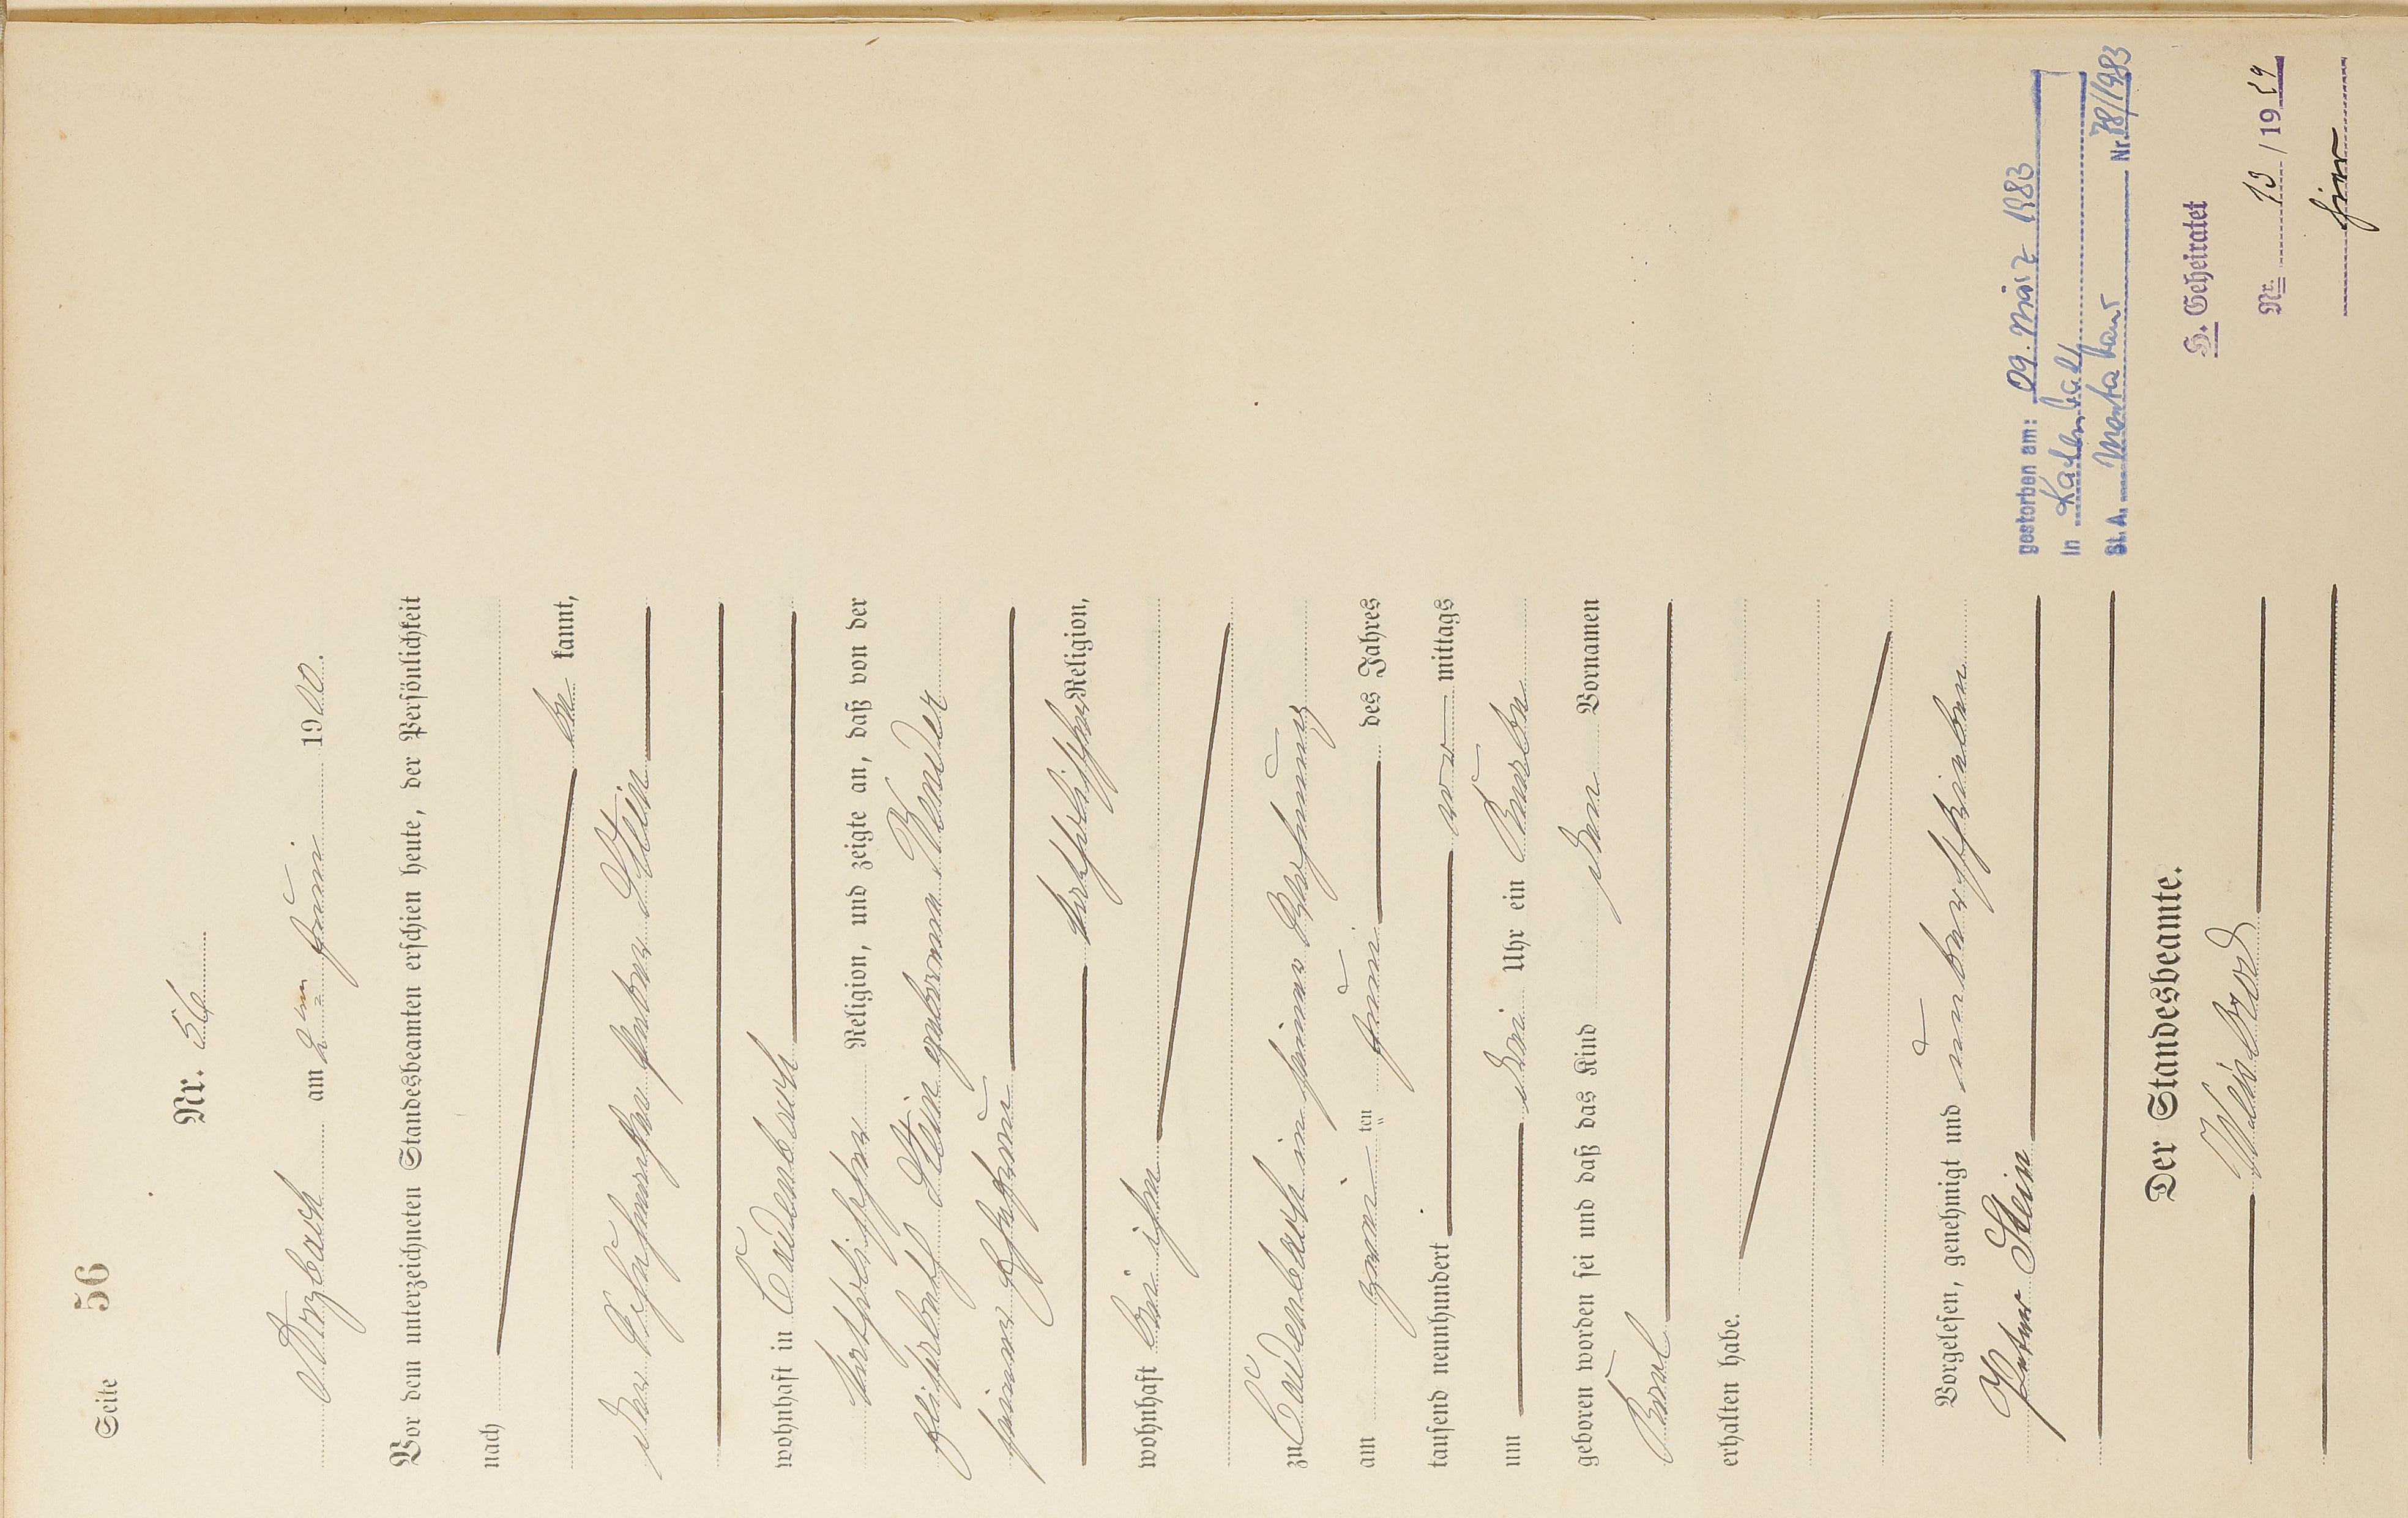 Seite 56
Nr. 56
Arzbach am 2ten Juni 1910.
Vor dem unterzeichneten Standesbeamten erschien heute, der Persönlichkeit
nach
be kannt,
der Peter Stein
wohnhaft in Cadenbach
katholischer Religion, und zeigte an, daß von der
Elisabeth Stein geborene Bender
seiner Ehefrau
katholischer Religion,
wohnhaft bei ihm
zu Cadenbach in seiner Wohnung
am zwei ten Juni des Jahres
tausend neunhundert vor mittags
um drei Uhr ein Knabe
geboren worden sei und daß das Kind den Vornamen
Karl
erhalten habe.
Vorgelesen, genehmigt und unterschrieben
Peter Stein
Der Standesbeamte.
gestorben am: 09. März 1983
in Kadenbach
St. A. Montabaur Nr. 78/1983
H. Geheiratet
Nr. 13 / 19
hier